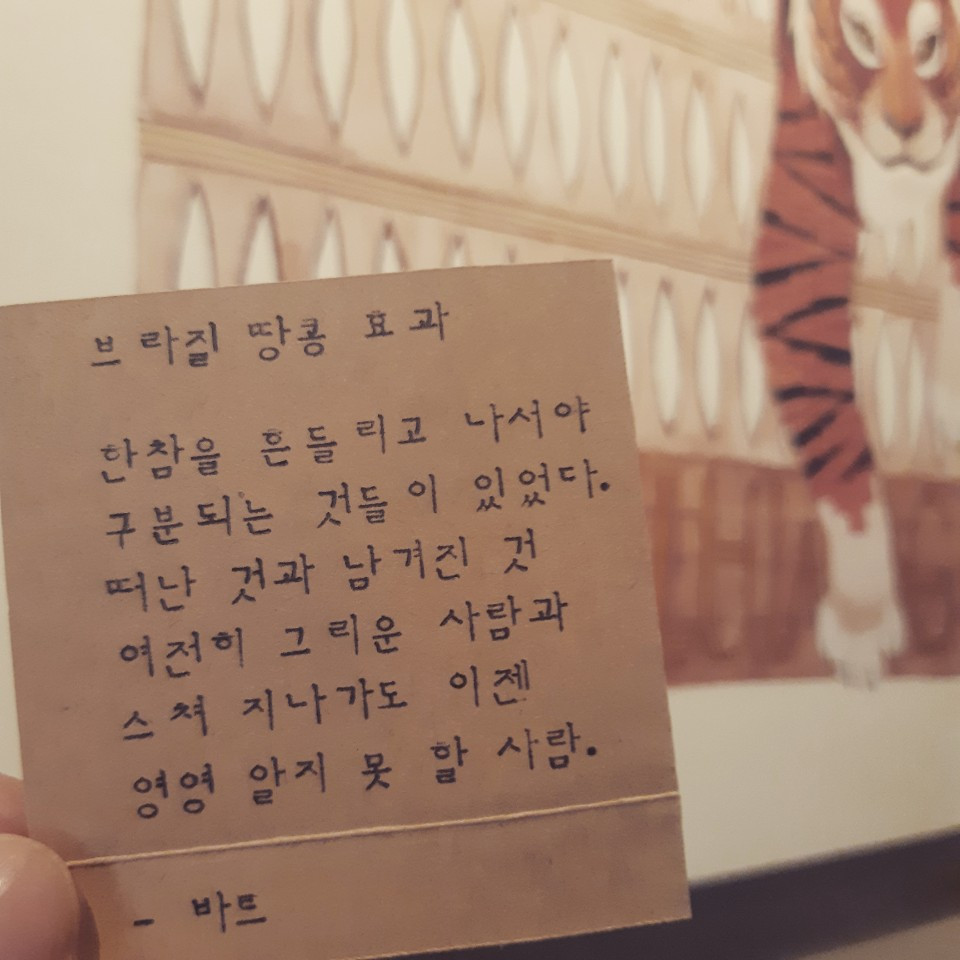 브라질 땅콩 효과
한참을 흔들리고 나서야
구분되는 것들이 있었다.
떠난 것과 남겨진 것
여전히 그리운 사람과
스쳐 지나가도 이젠
영영 알지 못 할 사람.
- 바트